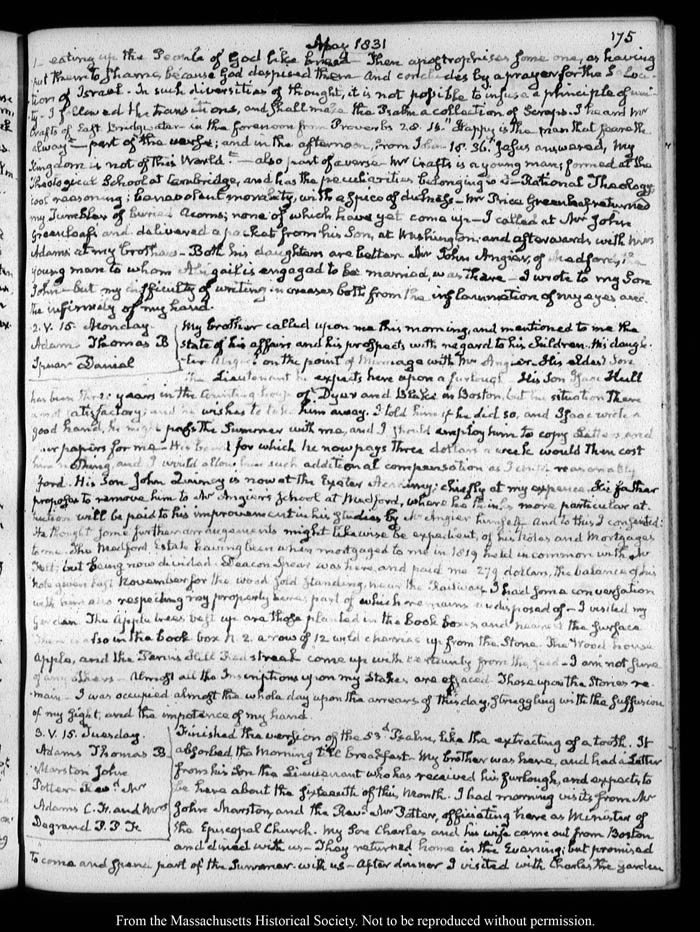 May 1831
175
eating up the People of God like bread — Then apostrophises some one, as having
put them to shame, because God despised them and concludes by a prayer for the
tion of Israel. In such diversities of thought, it is not possible to infuse a principle of uni-
ty. I followed the transitions, and shall make the Psalm a collection of Scraps. I heard Mr
Crafts of East Bridgewater in the forenoon from Proverbs 28. 14. Happy is the man that feareth
alway — part of the verse; and in the afternoon, from John 18. 36. Jesus answered, My
Kingdom is not of this World — also part of a verse. Mr Crafts is a young man; formed at the
Theological School at Cambridge, and has the peculiarities belonging to it — Rational Theology
cool reasoning; benevolent morality, with a spice of dulness — Mr Price Greenleaf returned
my Tumbler of buried Acorns; none of which have yet come up — I called at Mr John
Greenleaf's and delivered a packet from his Son, at Washington; and afterwards with Mrs
Adams at my brother's — Both his daughters are better. Mr John Angier, of Medford, the
young man to whom Abigail is engaged to be married, was there — I wrote to my Son
John — but my difficulty of writing increases both from the inflammation of my eyes and
the infirmity of my hand.
2. V. 15. Monday. My brother called upon me this morning, and mentioned to me the
Adams Thomas B state of his affairs and his prospects with regard to his Children. His daugh-
Spear Daniel ter on the point of Marriage with Mr Angier. His eldest Son
the Lieutenant he expects here upon a furlough. His Son Isaac Hull
has been three years in the Counting house of Dyer and in Boston, but his situation there
is not satisfactory; and he wishes to take him away. I told him if he did so, and Isaac wrote a
good hand, he might pass the Summer with me, and I should employ him to copy Letters and
papers for me — His board for which he now pays three dollars a week would then cost
him nothing, and I would allow him such additional compensation as I could reasonably
ford. His Son John Quincy is now at the Exeter Academy; chiefly at my expence. His father
proposes to remove him to Mr Angier's School at Medford, where he thinks more particular at-
tention will be paid to his improvement in his Studies by Mr Angier himself. And to this I consented.
He thought some further arrangements might likewise be expedient, of his Notes and Mortgages
to me. The Medford Estate having been when mortgaged to me in 1819 held in common with Mr
but being now divided. Deacon Spear was here, and paid me 279 dollars, the balance of his
note given last November for the wood sold standing, near the Railway. I had some conversation
with him also respecting my property part of which remains undisposed of — I visited my
Garden. The Apple trees best up are those planted in the book boxes and nearest the surface
There is also in the book box N. 2. a row of 12 wild cherries up from the Stone. The Wood house
Apple, and the Penns Hill Red streak come up with certainty from the seed — I am not sure
of any others — Almost all the Inscriptions upon my Stakes are effaced. Those upon the Stones re-
main — I was occupied almost the whole day upon the arrears of this day, struggling with the suffusion
of my Sight, and the impotence of my hand.
3. V. 15. Tuesday. Finished the version of the 53d Psalm, like the extracting of a tooth. It
Adams Thomas B. absorbed the Morning till breakfast. My brother was here, and had a Letter
Marston John from his Son the Lieutenant who has received his furlough, and expects to
Potter Revd Mr be here about the fifteenth of this Month. I had morning visits from Mr
Adams C. F. and Mrs John Marston, and the Revd Mr Potter, officiating here as Minister of
Degrand P. P. F. the Episcopal Church. My Son Charles and his wife came out from Boston
and dined with us — They returned home in the Evening; but promised
to come and spend part of the Summer with us — After dinner I visited with Charles the garden
From the Massachusetts Historical Society. Not to be reproduced without permission.